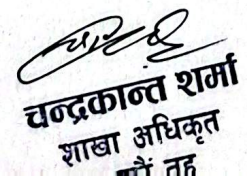 चन्द्रकान्त शर्मा
शाखा अधिकृत
तह